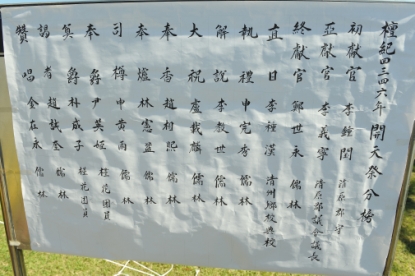 檀紀四三四六年 開天祭分榜
初獻官 李鍾閏 淸原郡守
亞獻官 李義寧 淸原郡議會議長
終獻官 鄭世永 儒林
直日 李種漢 淸州鄕校典校
執禮 申完秀 儒林
解說 李敎世 儒林
大祝 盧載麟 儒林
奉香 趙相熙 儒林
奉爐 林憲 儒林
司樽 申黃雨 儒林
奉爵 尹英姬 桂花團員
奠爵 朴成子 桂花團員
謁者 趙誠 儒林
贊唱 金在永 儒林